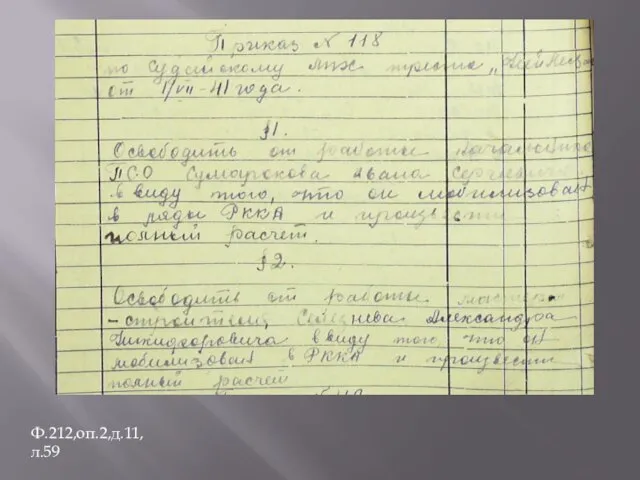 Приказ № 118
по Судайскому лпх треста „
от 1/VII-41 года.
§1.
Освободить от работы начальника
ПСО Сумарокова Ивана Сергеевича
ввиду того, что он мобилизован
в ряды РККА и произвести
полный расчет.
§2.
Освободить от работы мастера
-строителя, Селезнева Александра
Никидоровича ввиду того что он
мобилизован в РККА и произвести
полный расчет
Ф.212,оп.2,д.11,
л.59